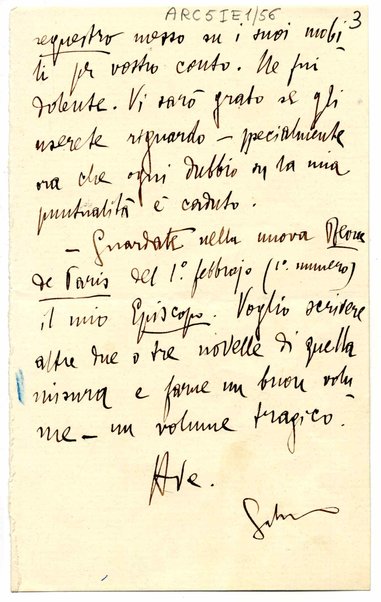 ARC5IE1/56
3
sequestro messo su i suoi mobi
li per vostro conto. Ne fui
dolente. Vi sarò grato se gli
userete riguardo – specialmente
ora che ogni dubbio su la mia
puntualità è caduto.
– Guardate nella nuova Revue
de Paris del 1.° febbrajo (1.° numero)
il mio Episcopo. Voglio scrivere
altre due o tre novelle di quella
misura e farne un buon volu
me – un volume tragico.
Ave.